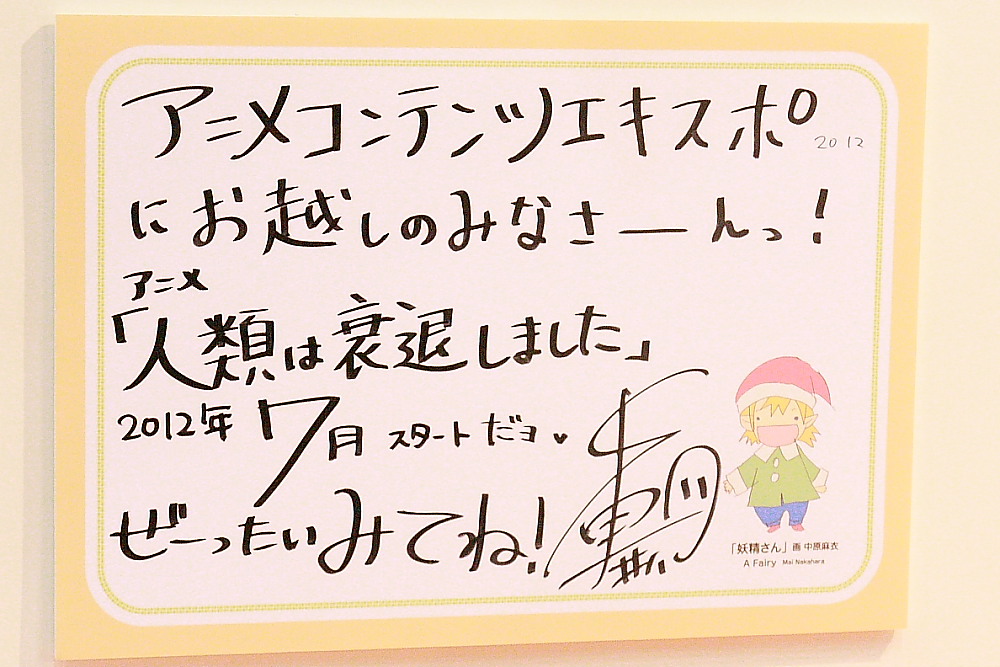 アニメコンテンツエキスポ 2012
にお越しのみなさーんっ!
アニメ
「人類は衰退しました」
2012年 7月 スタートだヨ♥
ぜーったいみてね!
「妖精さん」 画 中原麻衣
A Fairy Mai Nakahara